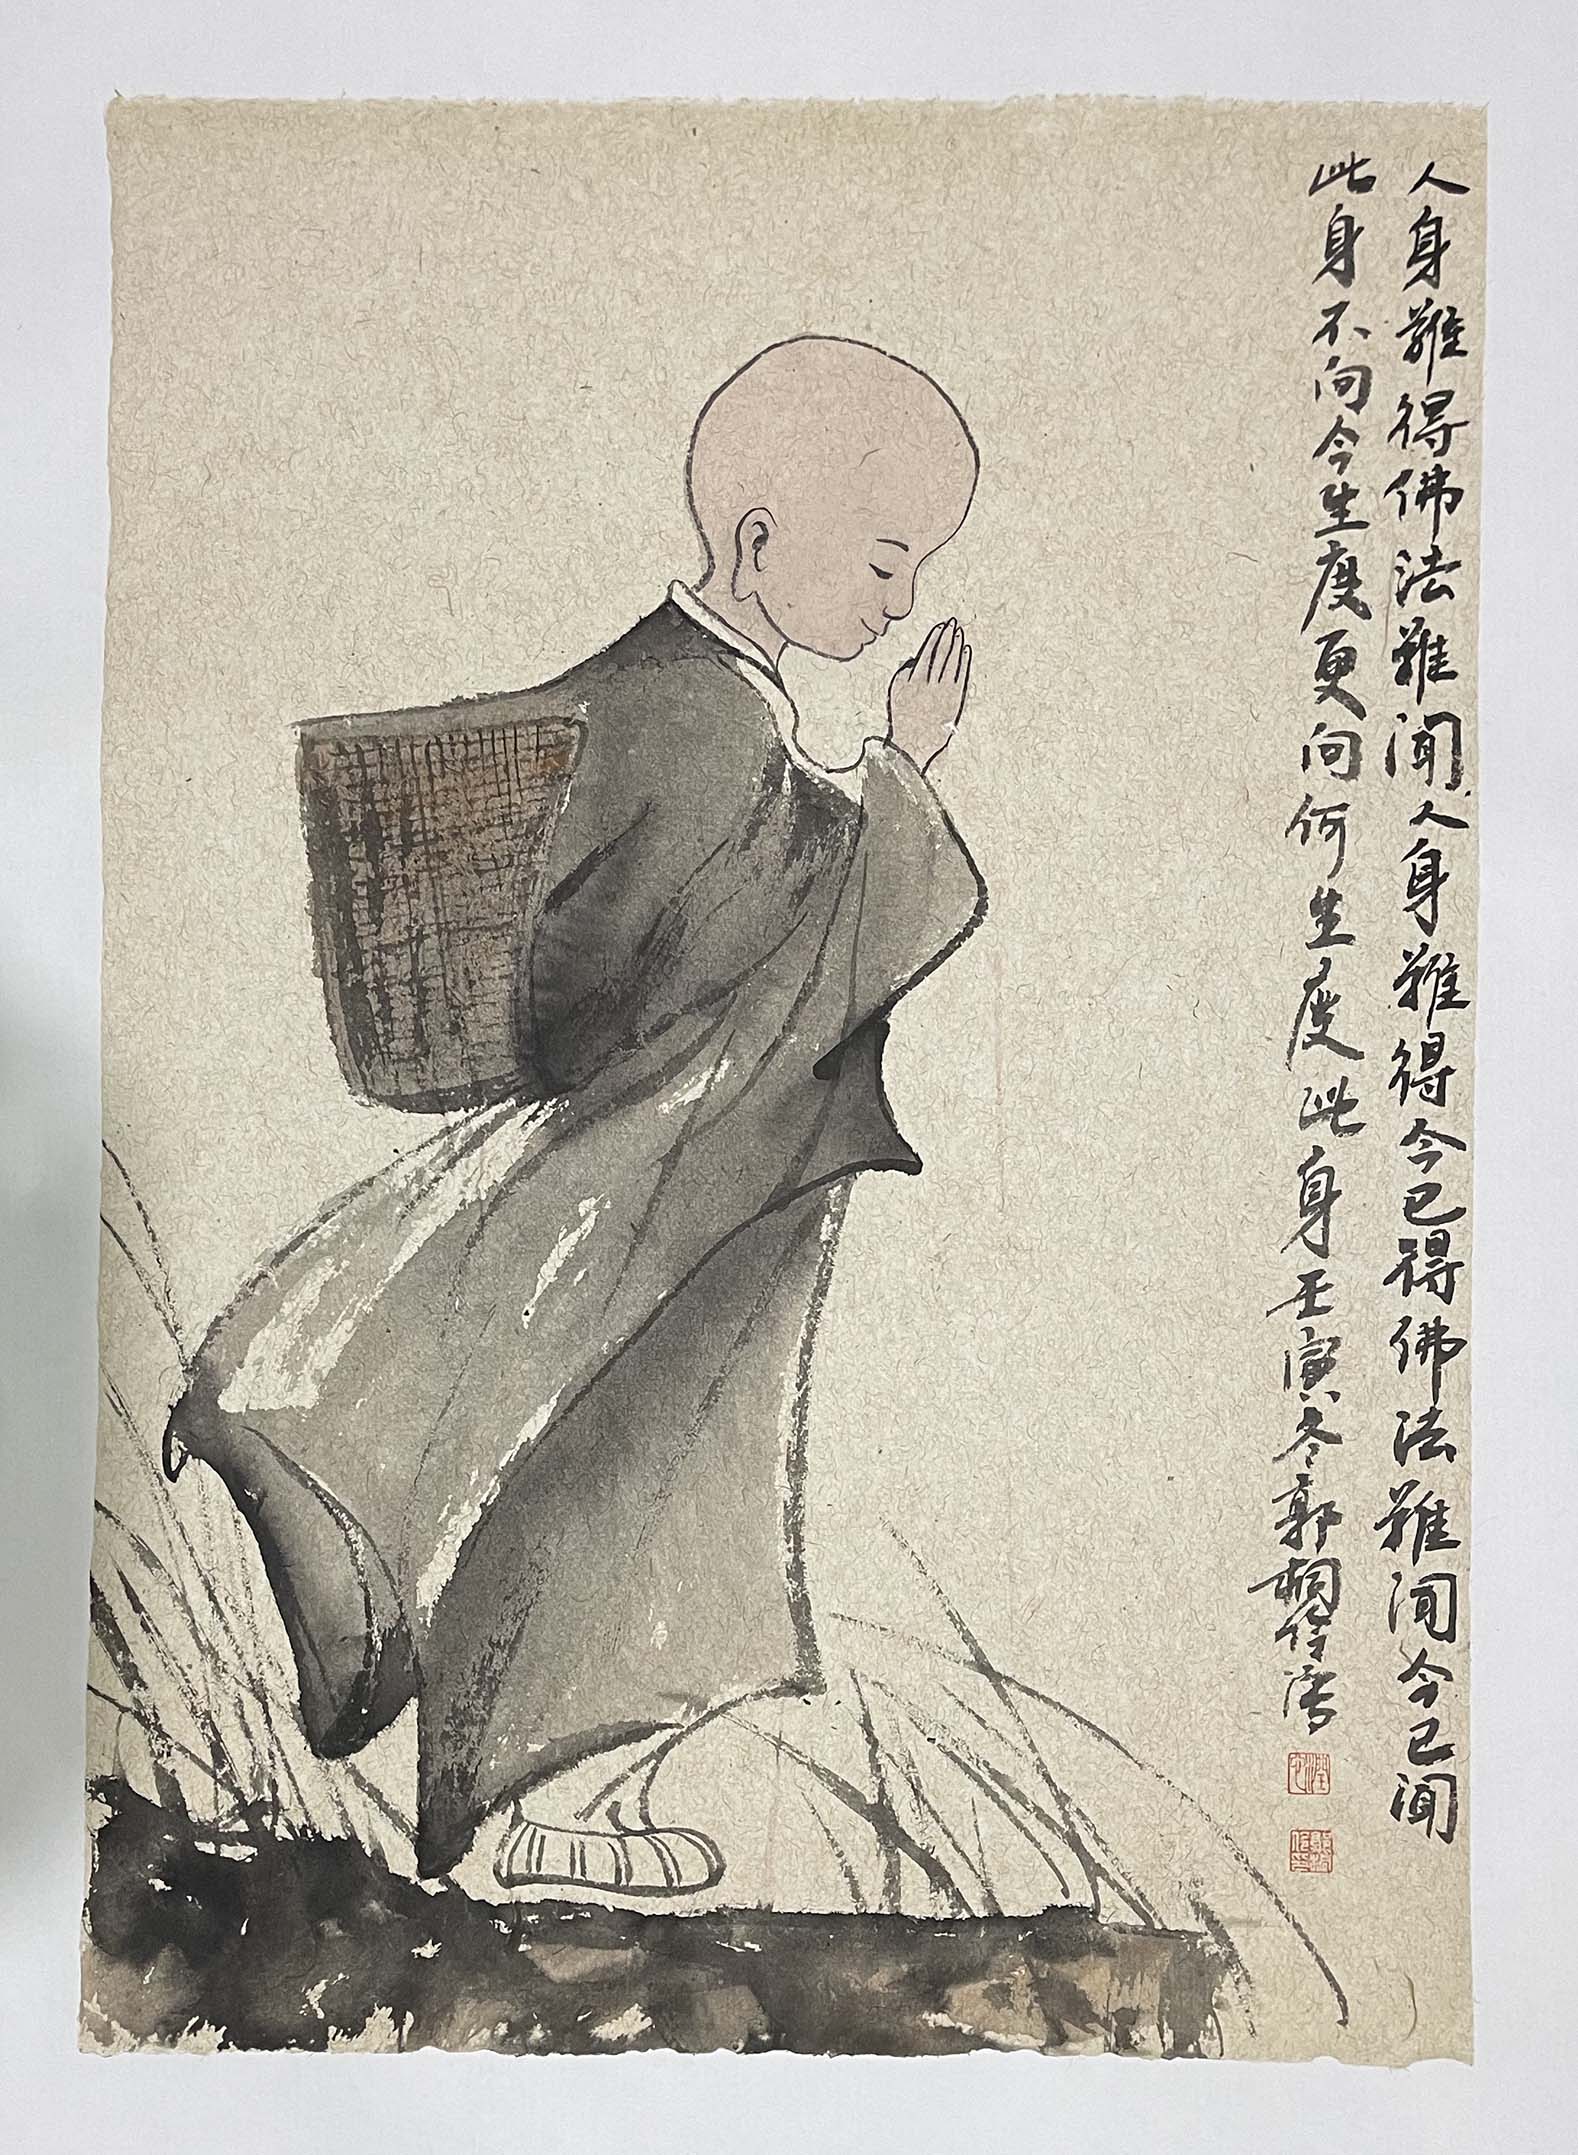 人身難得佛法難聞人身難得今已得佛法難聞今已聞
此身不向今生度更向何生度此身壬寅冬郭桐